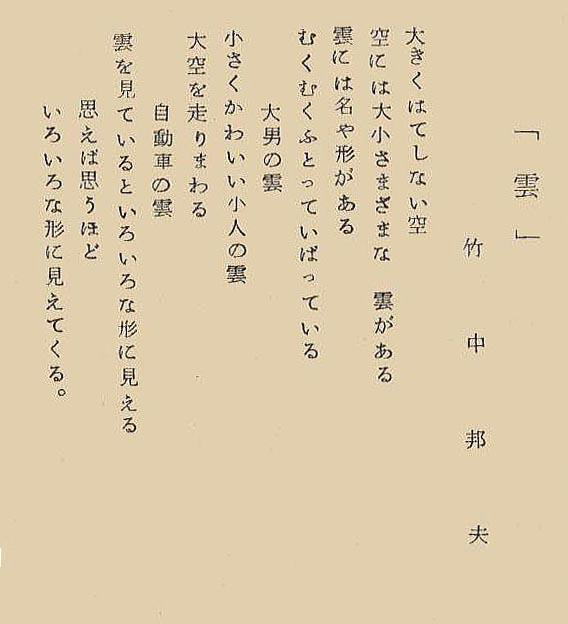 「雲」
竹中邦夫
大きくはてしない空
空には大小さまざまな　雲がある
雲には名や形がある
むくむくふとっていばっている
大男の雲
小さくかわいい小人の雲
大空を走りまわる
自動車の雲
雲を見ているといろいろな形に見える
思えば思うほど
いろいろな形に見えてくる。